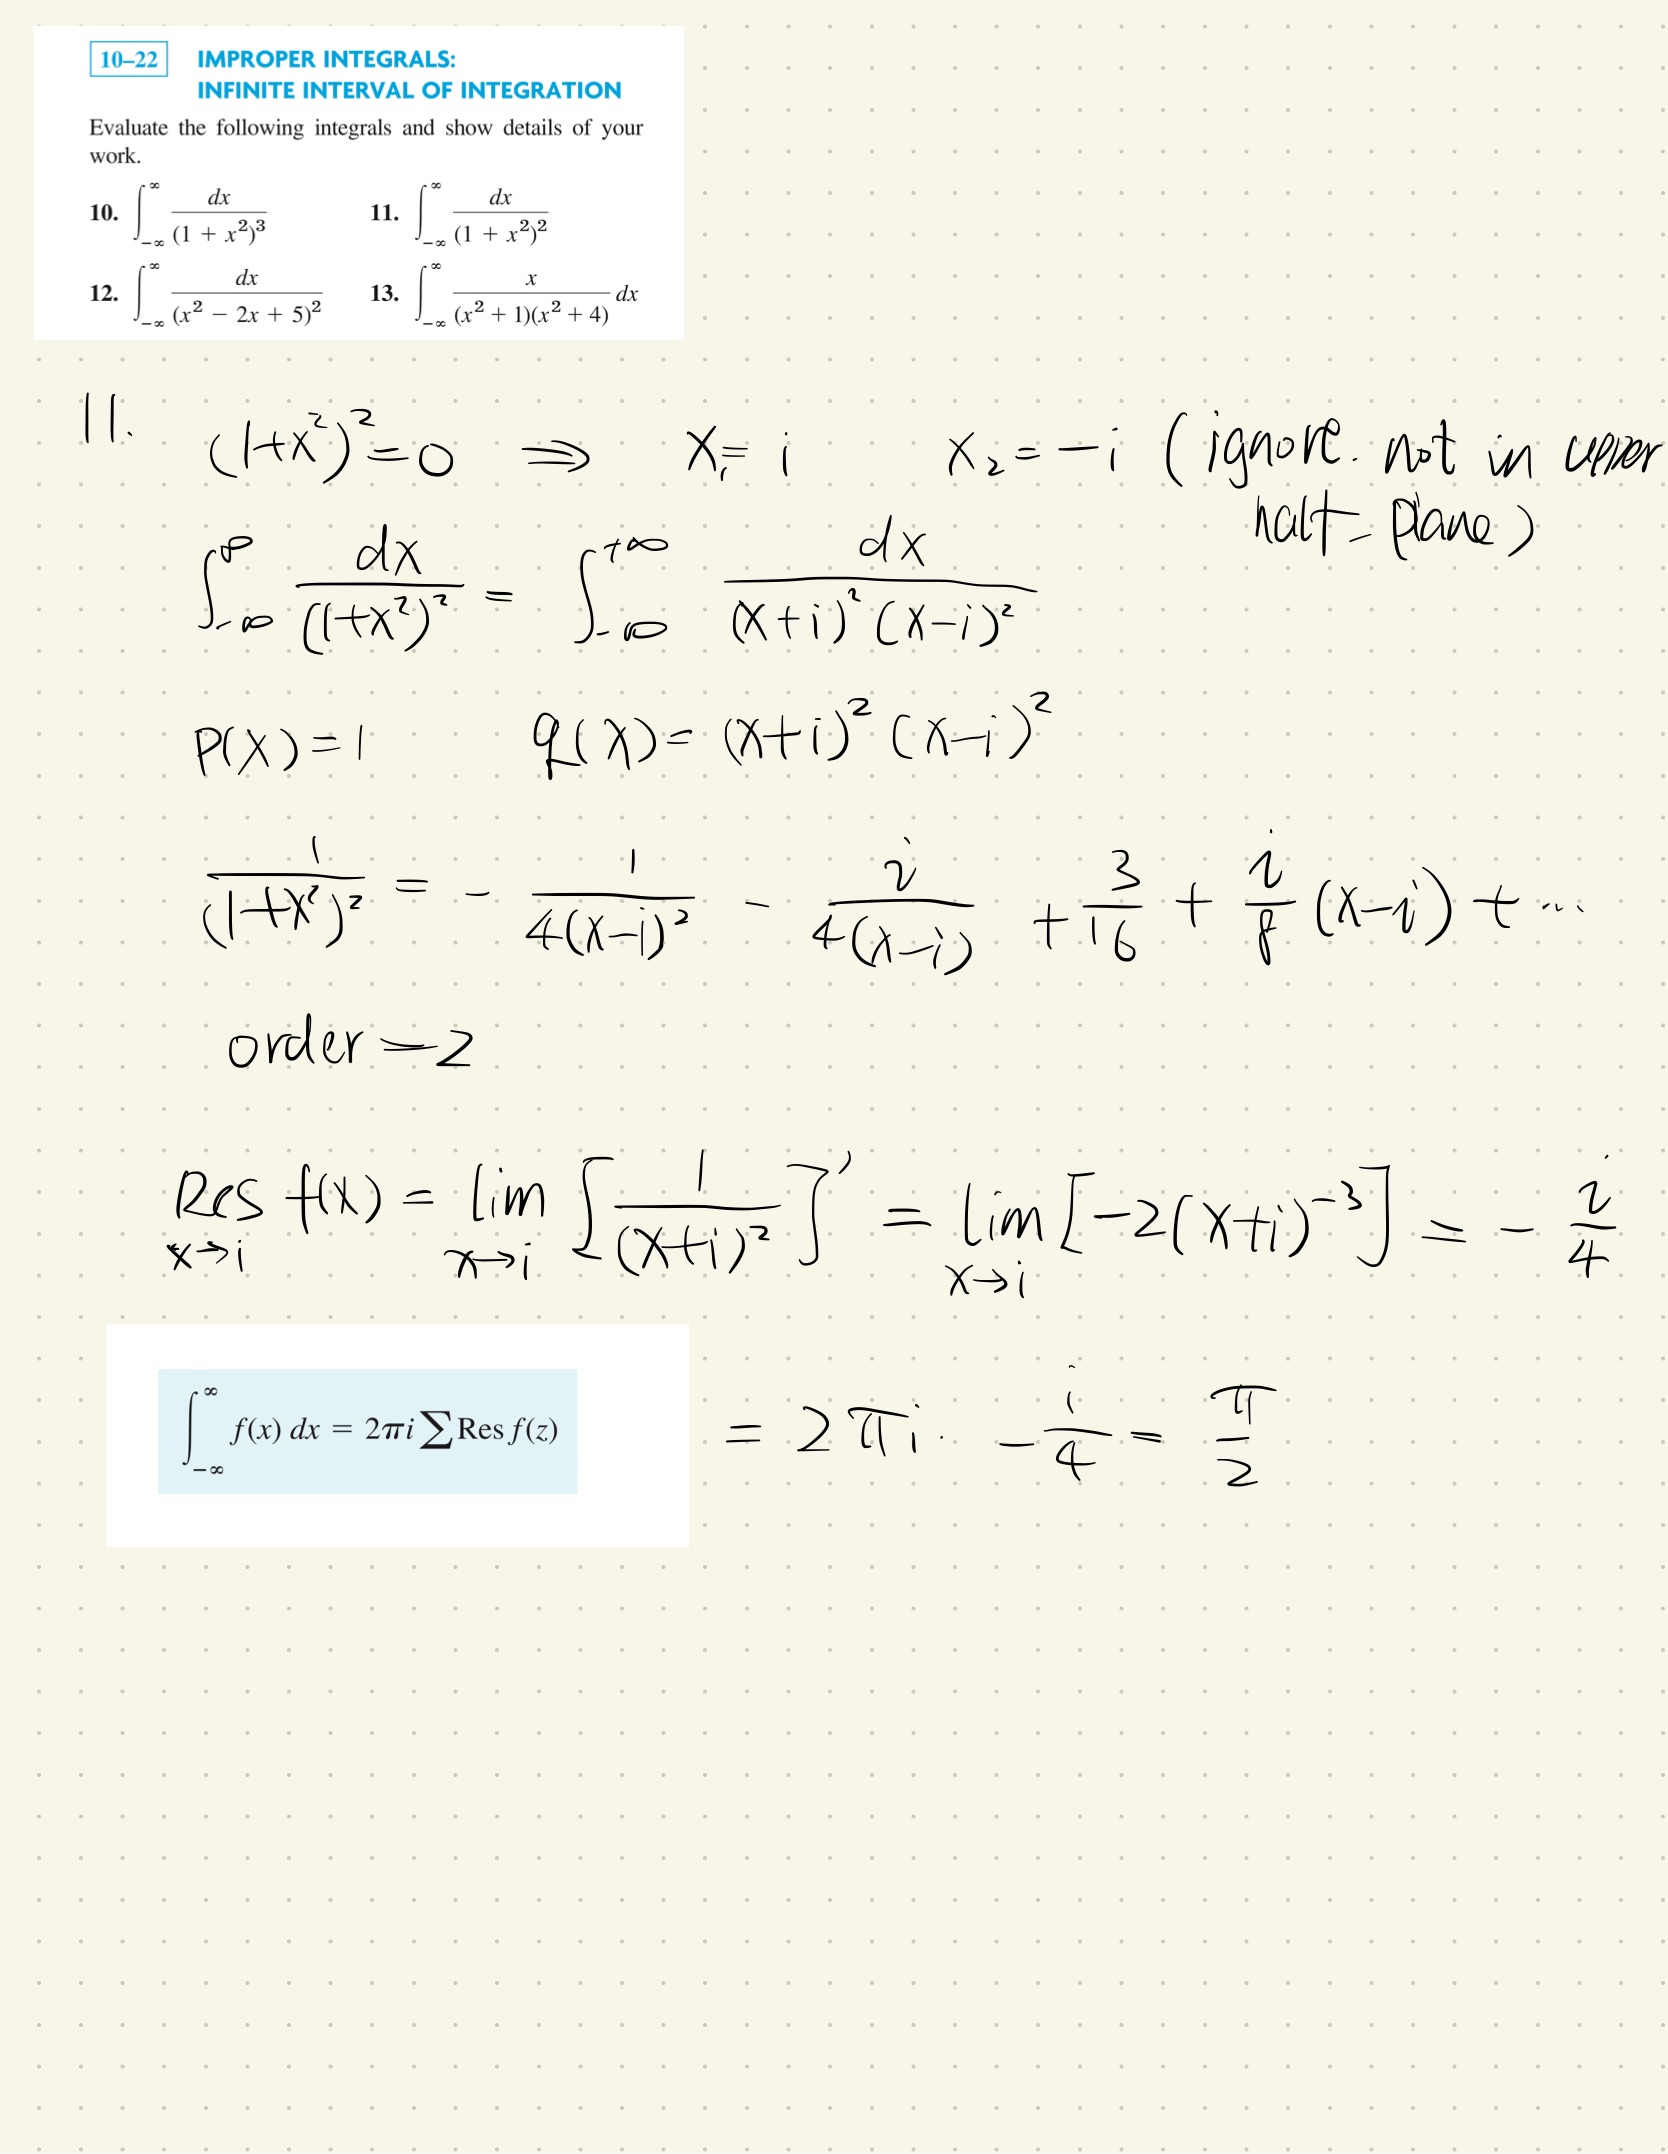 10–22 IMPROPER INTEGRALS:
INFINITE INTERVAL OF INTEGRATION
Evaluate the following integrals and show details of your
work.
10. ∫_{-∞}^{∞} dx/(1 + x²)³ 11. ∫_{-∞}^{∞} dx/(1 + x²)²
12. ∫_{-∞}^{∞} dx/(x² − 2x + 5)² 13. ∫_{-∞}^{∞} x/((x² + 1)(x² + 4)) dx
11. (1+x²)² = 0 ⇒ x₁ = i x₂ = −i (ignore. not in upper
half-plane)
∫_{-∞}^{∞} dx/(1+x²)² = ∫_{-∞}^{+∞} dx/((x+i)²(x−i)²)
p(x) = 1 q(x) = (x+i)²(x−i)²
1/(1+x²)² = − 1/(4(x−i)²) − i/(4(x−i)) + 3/16 + i/8 (x−i) + ...
order = 2
Res_{x→i} f(x) = lim_{x→i} [1/(x+i)²]' = lim_{x→i} [−2(x+i)⁻³] = − i/4
∫_{-∞}^{∞} f(x) dx = 2πi ∑ Res f(z) = 2πi · − i/4 = π/2